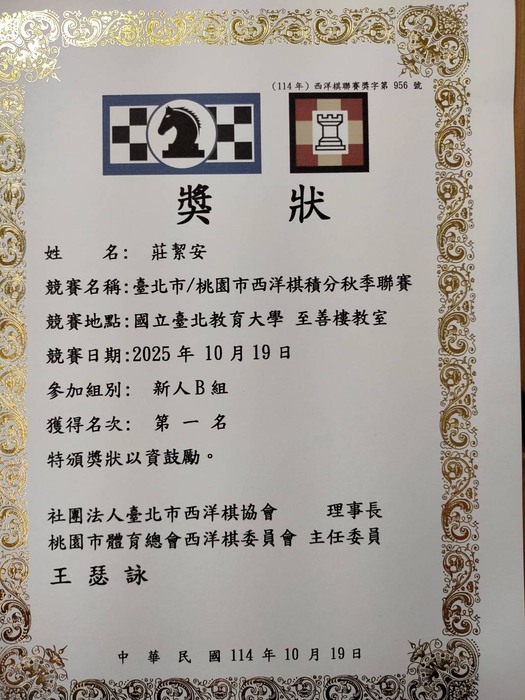 (114年) 西洋棋聯賽獎字第 956 號
獎 狀
姓 名: 莊絜安
競賽名稱:臺北市/桃園市西洋棋積分秋季聯賽
競賽地點:國立臺北教育大學 至善樓教室
競賽日期:2025 年 10 月 19 日
參加組別: 新人B組
獲得名次: 第 一 名
特頒獎狀以資鼓勵。
社團法人臺北市西洋棋協會 理事長
桃園市體育總會西洋棋委員會 主任委員
王 瑟 詠
中 華 民 國 114 年 10 月 19 日